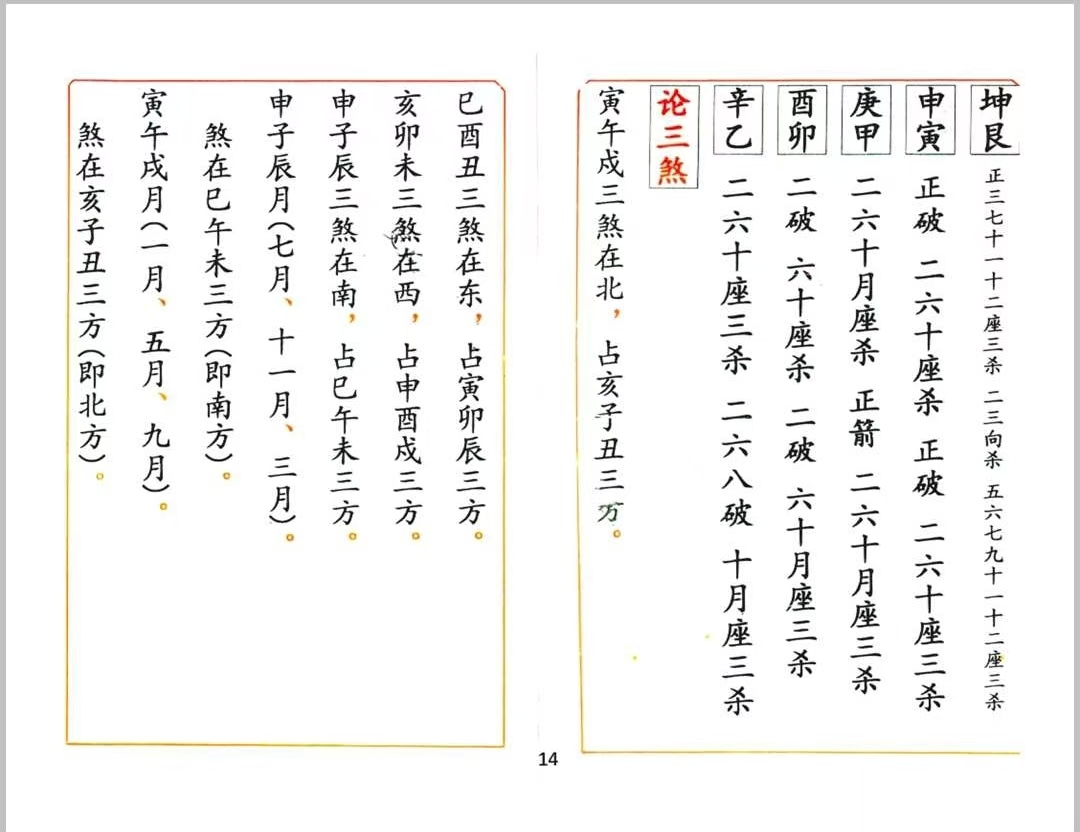 坤艮 正三七十一十二座三杀 二三向杀 五六七九十一十二座三杀
申寅 正破 二六十座杀 正破 二六十座三杀
庚甲 二六十月座杀 正箭 二六十月座三杀
酉卯 二破 六十座杀 二破 六十月座三杀
辛乙 二六十座三杀 二六八破 十月座三杀
论三煞
寅午戍三煞在北，占亥子丑三方。
巳酉丑三煞在东，占寅卯辰三方。
亥卯未三煞在西，占申酉戍三方。
申子辰三煞在南，占巳午未三方。
申子辰月(七月、十一月、三月)。
煞在巳午未三方(即南方)。
寅午戍月(一月、五月、九月)。
煞在亥子丑三方(即北方)。
14